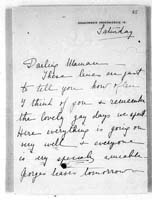 Saturday
Darling Maman —
These lines are just
to tell you how often
I think of you & remember
the lovely gay days we spent
Here everything is going on
very well & everyone
is very specially amiable
leaves tomorrow